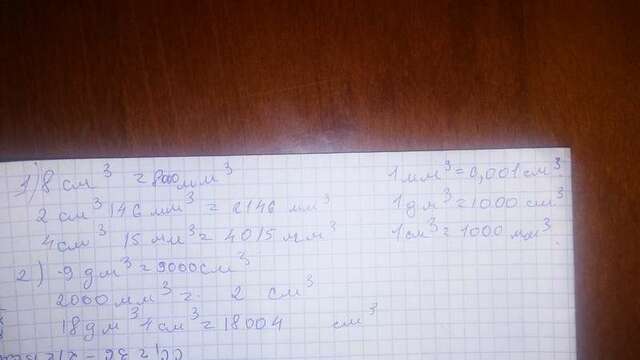 1) 8 см³ = 800 мм³
2 см³ 146 мм³ = 2146 мм³
4 см³ 15 мм³ = 4015 мм³
2) 9 дм³ = 9000 см³
2000 мм³ = 2 см³
18 дм³ 4 см³ = 18004 см³
1 мм³ = 0,001 см³
1 дм³ = 1000 см³
1 см³ = 1000 мм³.